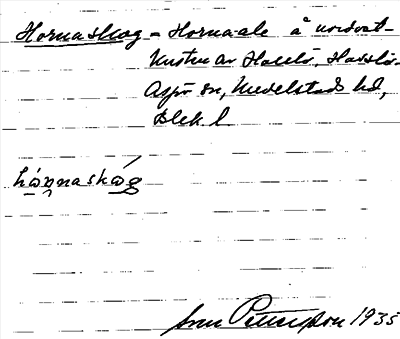 Hornaskog - Horna-ale å nordväst-
kusten av Hasslö, Hasslö-
Aspö sn, Medelstads hd,
Blek. l
hȧnnaskȧg
Petersson 1935